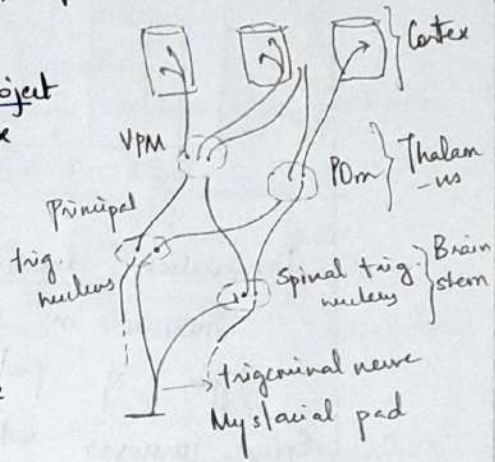 Cortex
oject
VPM
POm
Thalam
-us
Principal
trig.
nucleus
Spinal trig.
nucleus
Brain
stem
trigeminal nerve
Mystacial pad